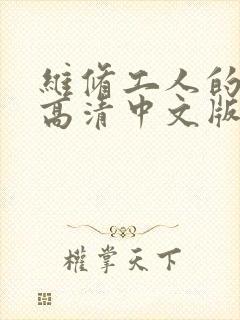 維脩工人的
高清中文版
權掌天下